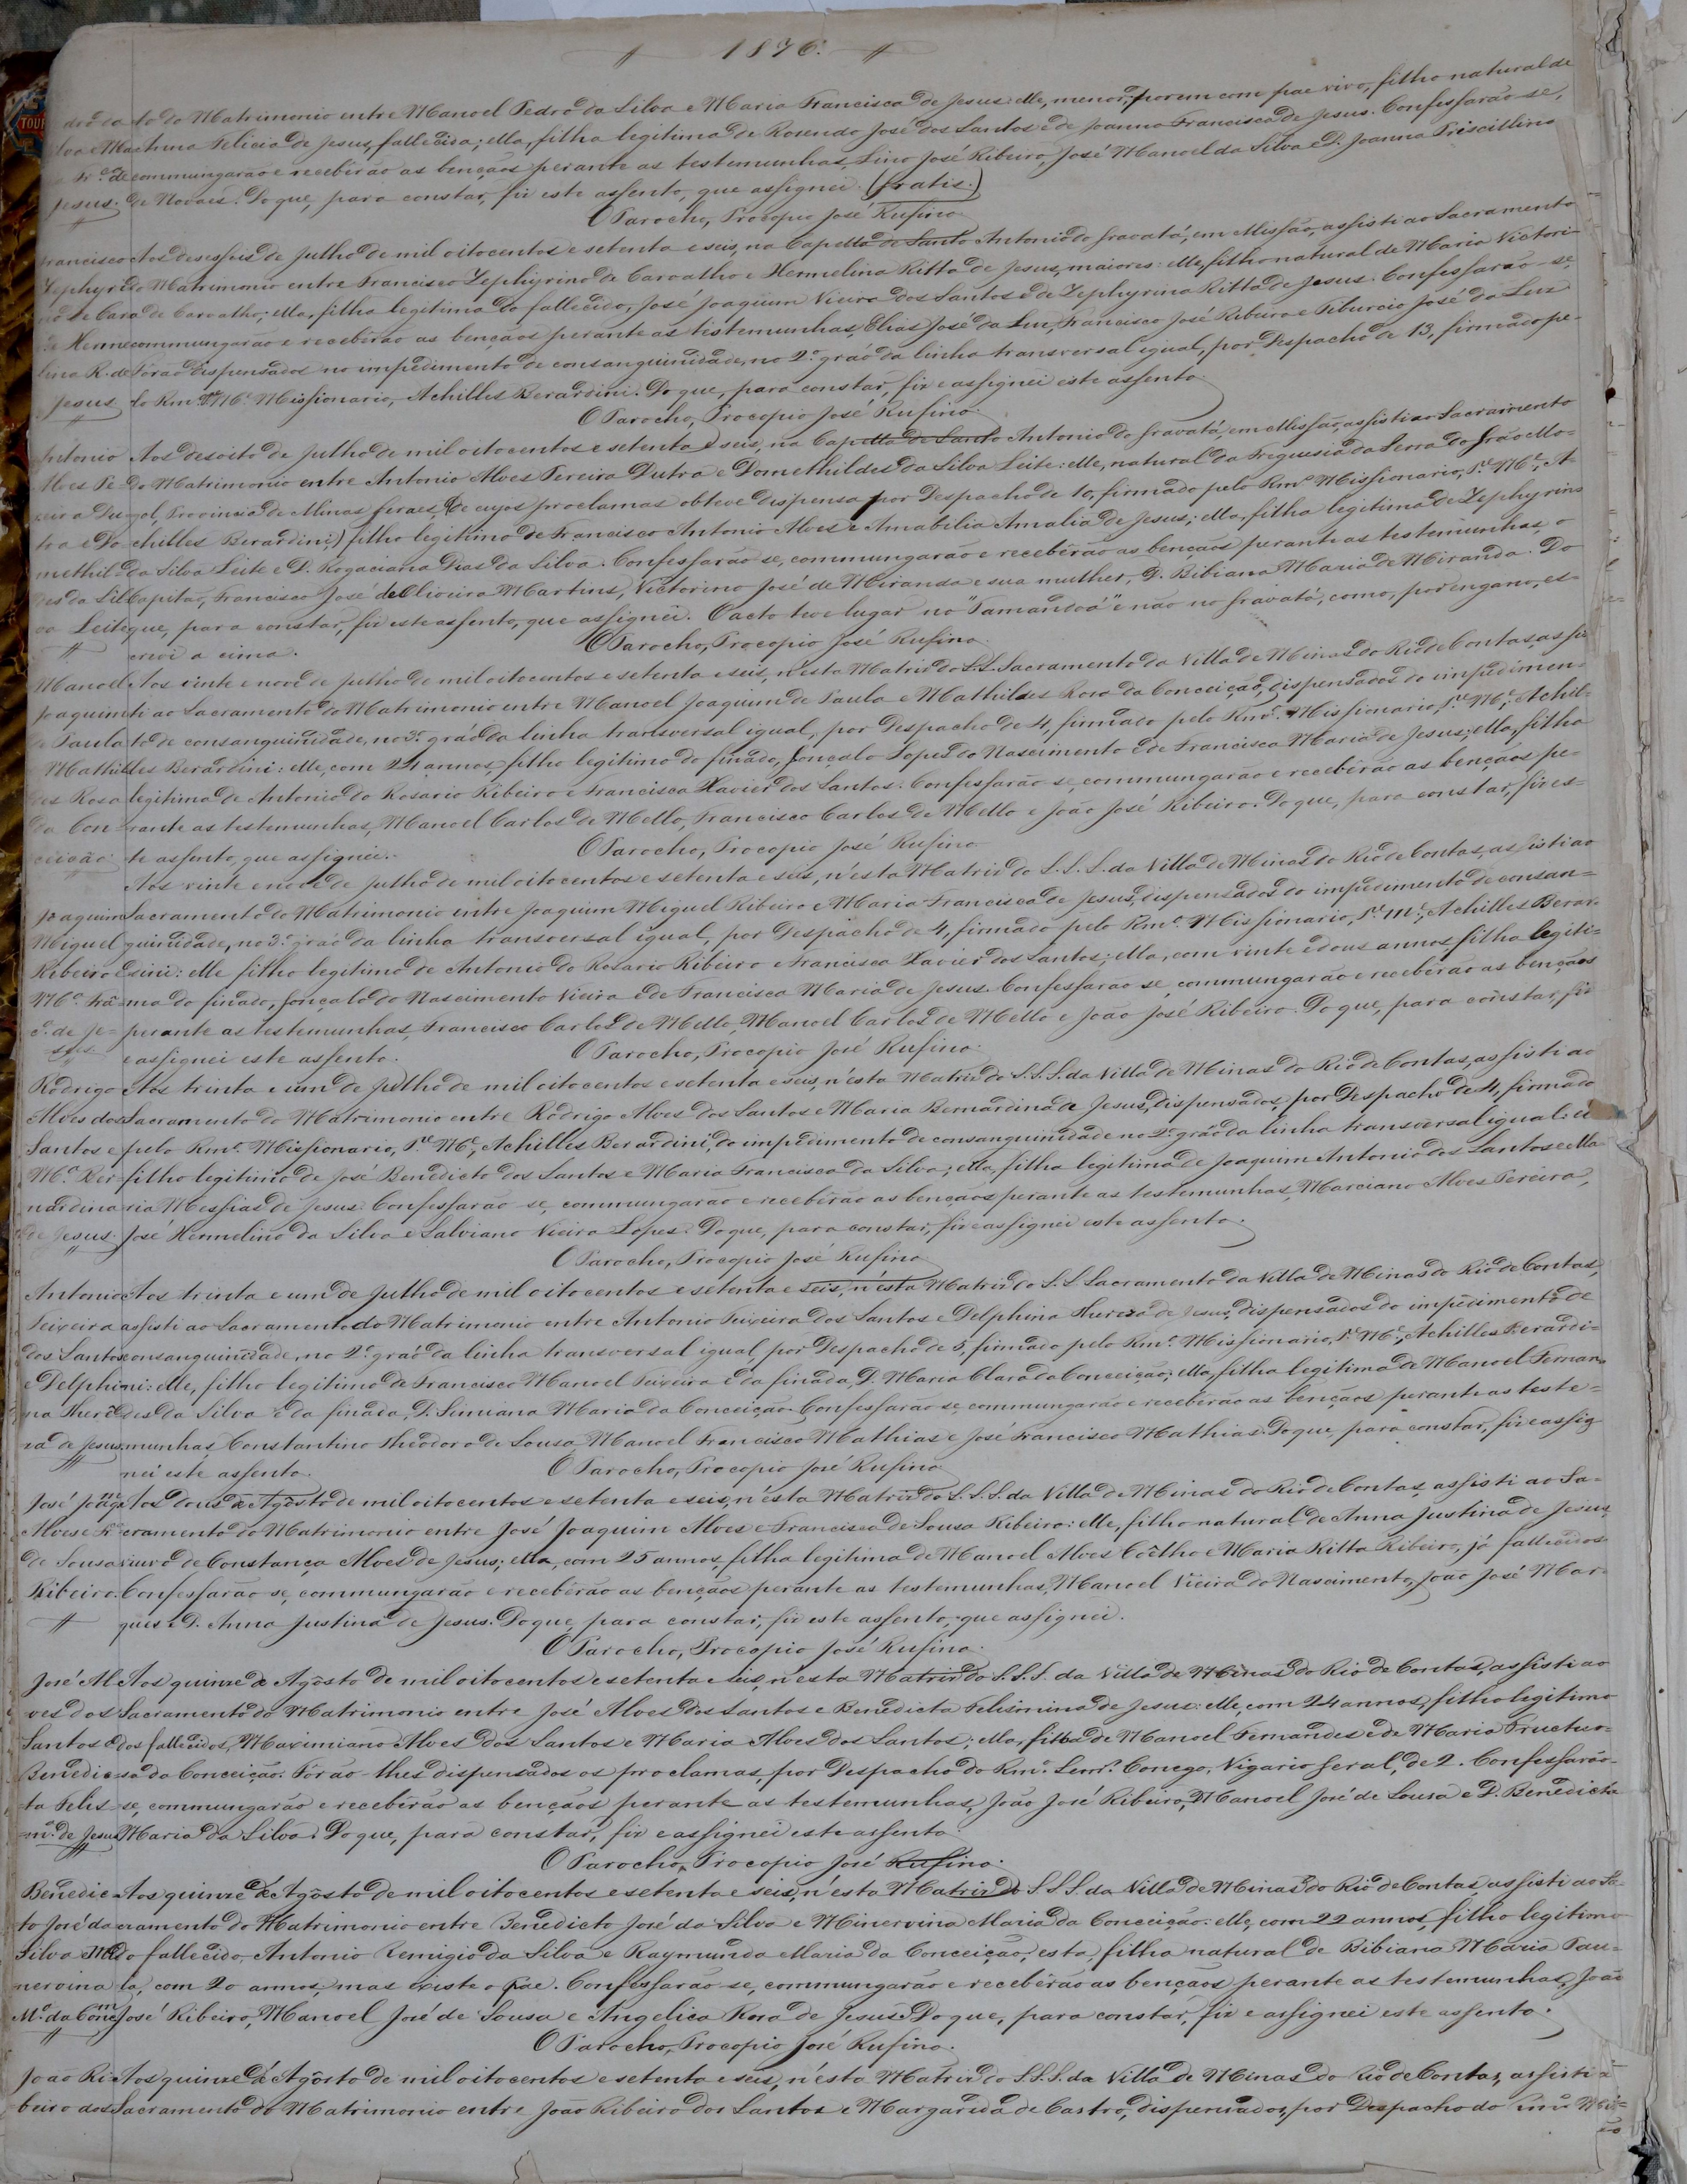 1876.
dro da to do Matrimonio entre Manoel Pedro da Silva e Maria Francisca de Jesus: elle, menor, porem com pae vivo, filho natural de
lva e Ma Anna Felicia de Jesus, fallecida; ella, filha legitima de Rosendo José dos Santos e de Joanna Francisca de Jesus. Confessarão-se,
Fr.ca de commungarão e recebêrão as bençãos perante as testemunhas, Lino José Ribeiro, José Manoel da Silva e D. Joanna Priscillina
Jesus. de Novaes. Do que, para constar, fiz este assento, que assignei. (Gratis.)
O Parocho, Procopio José Rufino.
Francisco Aos desesseis de Julho de mil oitocentos e setenta e seis, na Capella de Santo Antonio do Gravatá, em Missão, assisti ao Sacramento
Zephyri do Matrimonio entre Francisco Zephyrino de Carvalho e Hermelina Ritta de Jesus, maiores: elle, filho natural de Maria Victori-
no de Car a de Carvalho; ella, filha legitima do fallecido, José Joaquim Vieira dos Santos e de Zephyrina Ritta de Jesus. Confessarão-se,
e Herme commungarão e recebêrão as bençãos perante as testemunhas, Elias José da Luz, Francisco José Ribeiro e Tiburcio José da Luz.
lina R. de Fôrão dispensados no impedimento de consanguinidade, no 2.º gráo da linha transversal igual, por Despacho de 13, firmado pe-
Jesus lo Rm.º Missionario, Achilles Berardini. Do que, para constar, fiz e assignei este assento.
O Parocho, Procopio José Rufino.
Antonio Aos desoito de Julho de mil oitocentos e setenta e seis, na Capella de Santo Antonio do Gravatá, em Missão, assisti ao Sacramento
Alves Pe- do Matrimonio entre Antonio Alves Pereira Dutra e Domethildes da Silva Leite: elle, natural da Freguesia da Serra do Grão Mo-
reira Du gol, Provincia de Minas Geraes, (de cujos proclamas obteve dispensa por Despacho de 10, firmado pelo Rm.º Missionario, P.e M.e, A-
tra e Do chilles Berardini,) filho legitimo de Francisco Antonio Alves e Amabilia Amalia de Jesus; ella, filha legitima de Zephyrino
methil- da Silva Leite e D. Rogaciana Dias da Silva. Confessarão-se, commungarão e recebêrão as bençãos perante as testemunhas, o
des da Sil Capitão, Francisco José de Oliveira Martins, Victorino José de Miranda e sua mulher, D. Bibiana Maria de Miranda. Do
va Leite que, para constar, fiz este assento, que assignei. O acto teve lugar no "Tamanduá" e não no Gravatá, como, por engano, es-
crevi a cima. O Parocho, Procopio José Rufino.
Manoel Aos vinte e nove de Julho de mil oitocentos e setenta e seis, n'esta Matriz do S.S. Sacramento da Villa de Minas do Rio de Contas, assis-
Joaquim ti ao Sacramento do Matrimonio entre Manoel Joaquim de Paula e Mathildes Rosa da Conceição, dispensados do impedimen-
de Paula to de consanguinidade, no 3.º gráo da linha transversal igual, por Despacho de 4, firmado pelo Rm.º Missionario, P.e M.e, Achil-
Mathil les Berardini: elle, com 24 annos, filho legitimo do finado, Gonçalo Lopes do Nascimento e de Francisca Maria de Jesus; ella, filha
des Rosa legitima de Antonio do Rosario Ribeiro e Francisca Xavier dos Santos. Confessarão-se, commungarão e recebêrão as bençãos pe-
da Con- rante as testemunhas, Manoel Carlos de Mello, Francisco Carlos de Mello e João José Ribeiro. Do que, para constar, fiz es-
ceição te assento, que assignei. O Parocho, Procopio José Rufino.
Aos vinte e nove de Julho de mil oitocentos e setenta e seis, n'esta Matriz do S.S.S. da Villa de Minas do Rio de Contas, assisti ao
Joaquim Sacramento do Matrimonio entre Joaquim Miguel Ribeiro e Maria Francisca de Jesus, dispensados do impedimento de consan-
Miguel guinidade, no 3.º gráo da linha transversal igual, por Despacho de 4, firmado pelo Rm.º Missionario, P.e M.e, Achilles Berar-
Ribeiro e dini: elle filho legitimo de Antonio do Rosario Ribeiro e Francisca Xavier dos Santos; ella, com vinte e dous annos, filha legiti-
M.ª Fra- ma do finado, Gonçalo do Nascimento Vieira e de Francisca Maria de Jesus. Confessarão-se, commungarão e recebêrão as bençãos
c.ª de Je- perante as testemunhas, Francisco Carlos de Mello, Manoel Carlos de Mello e João José Ribeiro. Do que, para constar, fiz
sus. e assignei este assento. O Parocho, Procopio José Rufino.
Rodrigo Aos trinta e um de Julho de mil oitocentos e setenta e seis, n'esta Matriz do S.S.S. da Villa de Minas do Rio de Contas, assisti ao
Alves dos Sacramento do Matrimonio entre Rodrigo Alves dos Santos e Maria Bernardina de Jesus, dispensados, por Despacho de 4, firmado
Santos e pelo Rm.º Missionario, P.e M.e, Achilles Berardini, do impedimento de consanguinidade no 2.º gráo da linha transversal igual: el
M.ª Ber- filho legitimo de José Benedicto dos Santos e Maria Francisca da Silva; ella, filha legitima de Joaquim Antonio dos Santos e Ma-
nardina ria Messias de Jesus. Confessarão-se, commungarão e recebêrão as bençãos perante as testemunhas, Marciano Alves Pereira,
de Jesus. José Hermelino da Silva e Salviano Vieira Lopes. Do que, para constar, fiz e assignei este assento.
O Parocho, Procopio José Rufino.
Antonio Aos trinta e um de Julho de mil oitocentos e setenta e seis, n'esta Matriz do S.S. Sacramento da Villa de Minas do Rio de Contas,
Teixeira assisti ao Sacramento do Matrimonio entre Antonio Teixeira dos Santos e Delphina Thereza de Jesus, dispensados do impedimento de
dos Santos consanguinidade, no 2.º gráo da linha transversal igual, por Despacho de 5, firmado pelo Rm.º Missionario, P.e M.e, Achilles Berardi-
e Delphi ni: elle, filho legitimo de Francisco Manoel Teixeira e da finada, D. Maria Clara da Conceição; ella, filha legitima de Manoel Fernan-
na There des da Silva e da finada, D. Simiana Maria da Conceição. Confessarão-se, commungarão e recebêrão as bençãos perante as teste-
za de Jesus munhas, Constantino Theodoro de Sousa, Manoel Francisco Mathias e José Francisco Mathias. Do que, para constar, fiz e assig
nei este assento. O Parocho, Procopio José Rufino.
José Joaq.m Aos dous de Agôsto de mil oitocentos e setenta e seis, n'esta Matriz do S.S.S. da Villa de Minas do Rio de Contas, assisti ao Sa-
Alves e Fr.ca cramento do Matrimonio entre José Joaquim Alves e Francisca de Sousa Ribeiro: elle, filho natural de Anna Justina de Jesus,
de Sousa viuvo de Constança Alves de Jesus; ella, com 25 annos, filha legitima de Manoel Alves Coêlho e Maria Ritta Ribeiro, já fallecidos.
Ribeiro. Confessarão-se, commungarão e recebêrão as bençãos perante as testemunhas, Manoel Vieira do Nascimento, João José Mar-
ques e D. Anna Justina de Jesus. Do que, para constar, fiz este assento, que assignei.
O Parocho, Procopio José Rufino.
José Al Aos quinze de Agôsto de mil oitocentos e setenta e seis, n'esta Matriz do S.S.S. da Villa de Minas do Rio de Contas, assisti ao
ves dos Sacramento do Matrimonio entre José Alves dos Santos e Benedicta Felismina de Jesus: elle, com 24 annos, filho legitimo
Santos e dos fallecidos, Maximiano Alves dos Santos e Maria Alves dos Santos; ella, filha de Manoel Fernandes e de Maria Fructuo-
Benedic- sa da Conceição. Fôrão-lhes dispensados os proclamas, por Despacho do Rm.º Senr.º Conego, Vigario Geral, de 2. Confessarão-
ta Felis- se, commungarão e recebêrão as bençãos perante as testemunhas, João José Ribeiro, Manoel José de Sousa e D. Benedicta
m.ª de Jesus Maria da Silva. Do que, para constar, fiz e assignei este assento.
O Parocho, Procopio José Rufino.
Benedic- Aos quinze de Agôsto de mil oitocentos e setenta e seis, n'esta Matriz do S.S.S. da Villa de Minas do Rio de Contas, assisti ao Sa-
to José da cramento do Matrimonio entre Benedicto José da Silva e Minervina Maria da Conceição: elle, com 22 annos, filho legitimo
Silva e Mi do fallecido, Antonio Remigio da Silva e Raymunda Maria da Conceição; esta, filha natural de Bibiana Maria Pau-
nervina la, com 20 annos, mas existe o Pae. Confessarão-se, commungarão e recebêrão as bençãos perante as testemunhas, João
M.ª da Conc.m José Ribeiro, Manoel José de Sousa e Angelica Rosa de Jesus. Do que, para constar, fiz e assignei este assento.
O Parocho, Procopio José Rufino.
João Ri- Aos quinze de Agôsto de mil oitocentos e setenta e seis, n'esta Matriz do S.S.S. da Villa de Minas do Rio de Contas, assisti a
beiro dos Sacramento do Matrimonio entre João Ribeiro dos Santos e Margarida de Castro, dispensados, por Despacho do